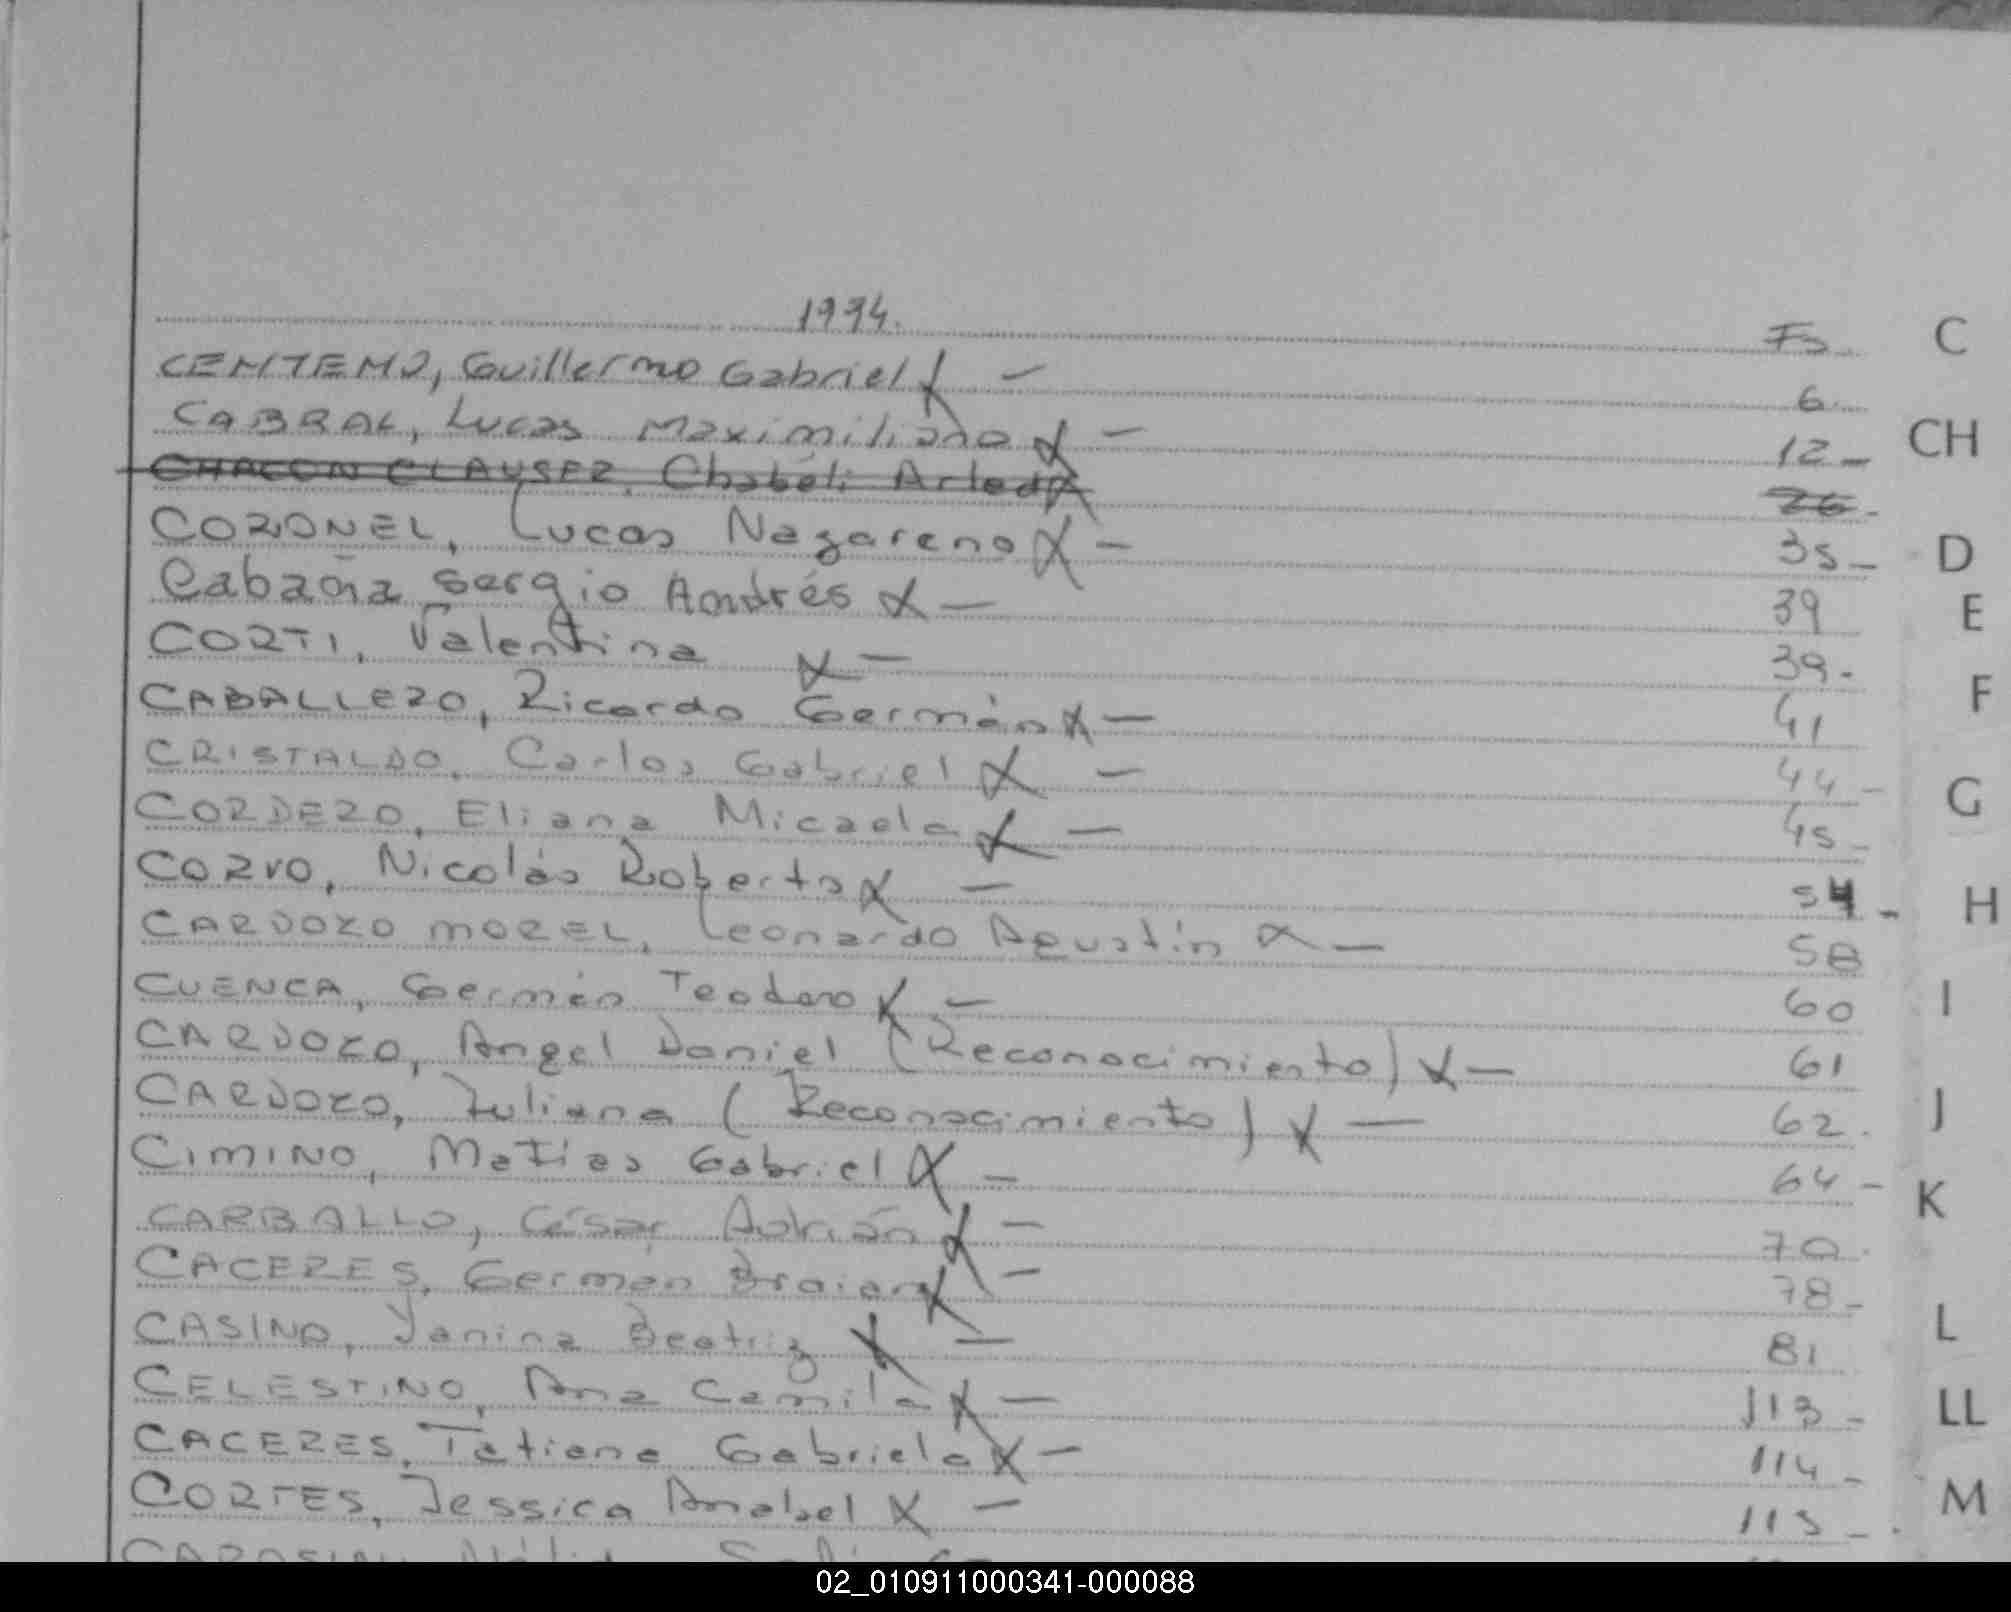 1994.
Fs C
CENTENO, Guillermo Gabriel X — 6
CABRAL, Lucas Maximiliano X — 12 - CH
CHACON CLAUSER, Chabeli X 26 -
CORONEL, Lucas Nazareno X — 35 - D
Cabaña Sergio Andrés X — 39 E
CORTI, Valentina X — 39 -
CABALLERO, Ricardo Germán X — 41 F
CRISTALDO, Carlos Gabriel X — 44 -
CORDERO, Eliana Micaela X — 45 - G
CORVO, Nicolás Roberto X — 54 - H
CARDOZO MOREL, Leonardo Agustín X — 58
CUENCA, Germán Teodoro X — 60 I
CARDOZO, Angel Daniel (Reconocimiento) X — 61
CARDOZO, Juliana (Reconocimiento) X — 62. J
CIMINO, Matías Gabriel X — 64 - K
CARBALLO, César Adrián X — 70.
CACERES, German Braian X — 78 -
CASINO, Yanina Beatriz X — 81 L
CELESTINO, Ana Camila X — 113 - LL
CACERES, Tatiana Gabriela X — 114 -
CORTES, Jessica Anabel X — 115 - M
02_010911000341-000088